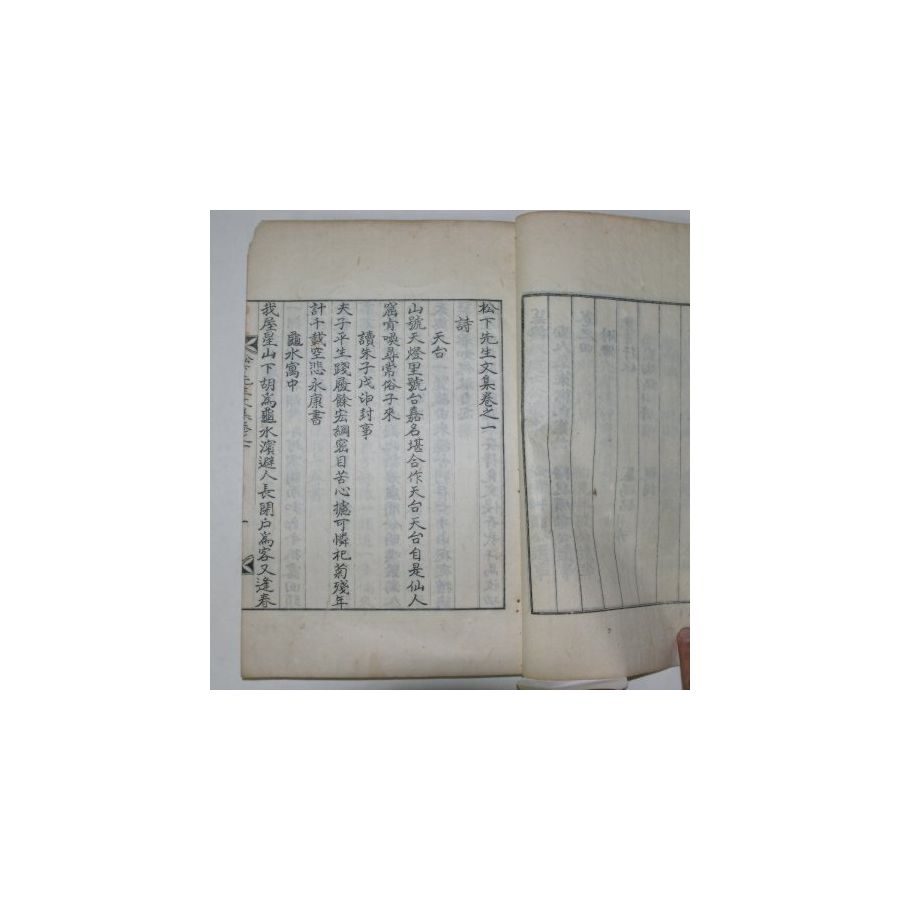 松下先生文集卷之一
詩
天台
山號天燈里號台嘉名堪合作天台天台自是仙人
窟肯喚尋常俗子來
讀朱子戊申封事
夫子平生踐履餘宏綱密目苦心攄可憐杞菊殘年
計千載空悲永康書
龜水寓中
我屋星山下胡爲龜水濱避人長閉戶爲客又逢春